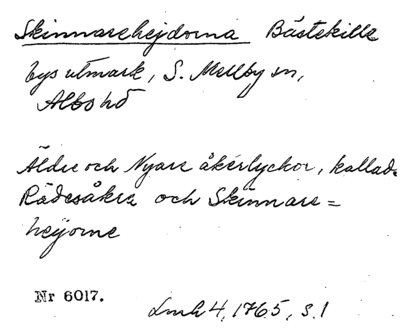 Skinnarehejdorna Bästekille
bys utmark, S. Mellby sn,
Albo hd
Äldre och Nyare åkerlyckor, kallade
Rädesåkra och Skinnare=
heijorne
Nr 6017.
Lmh 4, 1765, s. 1